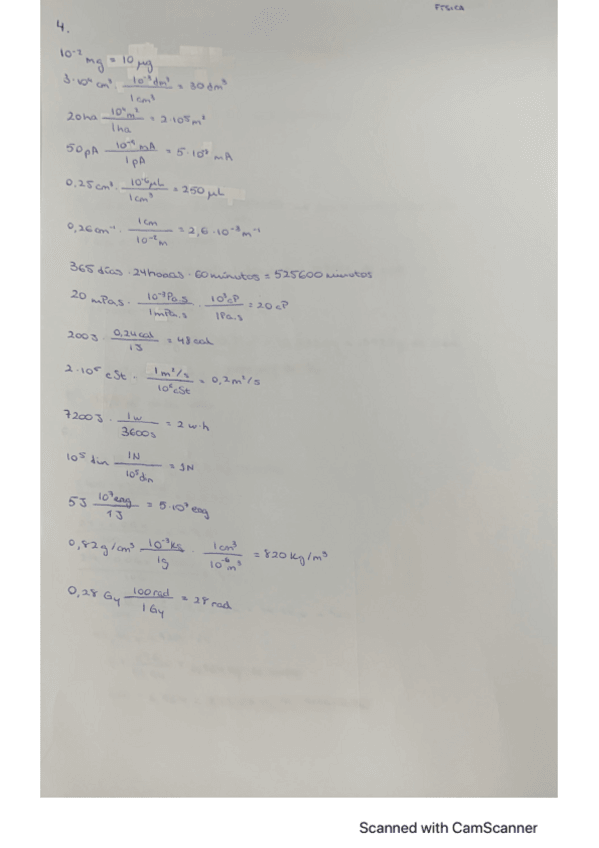 FÍSICA
4.
10⁻² mg = 10 µg
3·10⁴ cm³ · 10⁻³dm³ / 1cm³ = 30 dm³
20ha 10⁴m² / 1ha = 2·10⁵m²
50pA 10⁻⁹mA / 1pA = 5·10⁻⁸ mA
0,25cm³ · µL / 1cm³ = 250 µL
0,26cm⁻¹ · 1cm / 10⁻²m = 2,6·10⁻³m⁻¹
365 días · 24horas · 60 minutos = 525600 minutos
20 mPa.s · 10⁻³Pa.s / 1mPa.s · 10³cP / 1Pa.s = 20 cP
200J · 0,24cal / 1J = 48 cal
2·10⁵ cSt · 1m²/s / 10⁶cSt = 0,2m²/s
7200J · 1w / 3600s = 2 w·h
10⁵ din 1N / 10⁵din = 1N
5J 10⁷erg / 1J = 5·10⁷ erg
0,82g/cm³ 10⁻³kg / 1g · 1cm³ / 10⁻⁶m³ = 820 kg/m³
0,28 Gy 100rad / 1Gy = 28 rad
Scanned with CamScanner